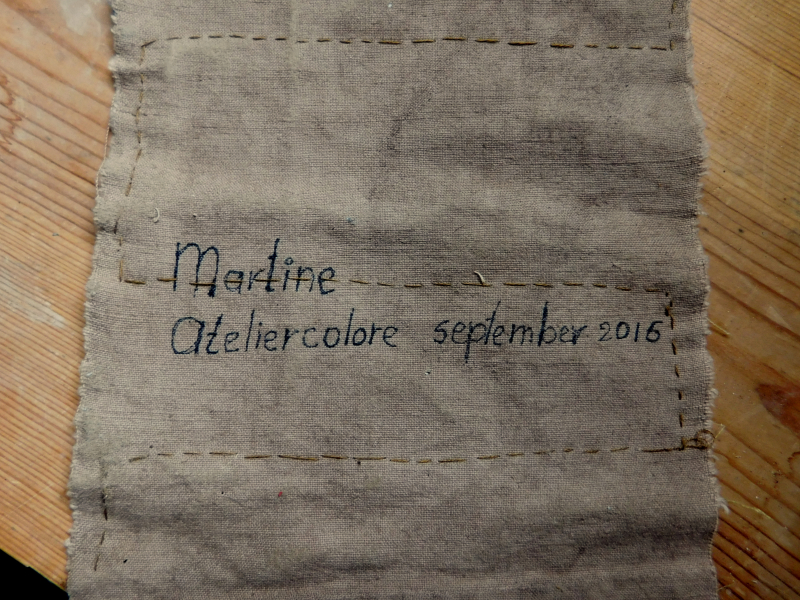 Martine
Ateliercolore september 2016